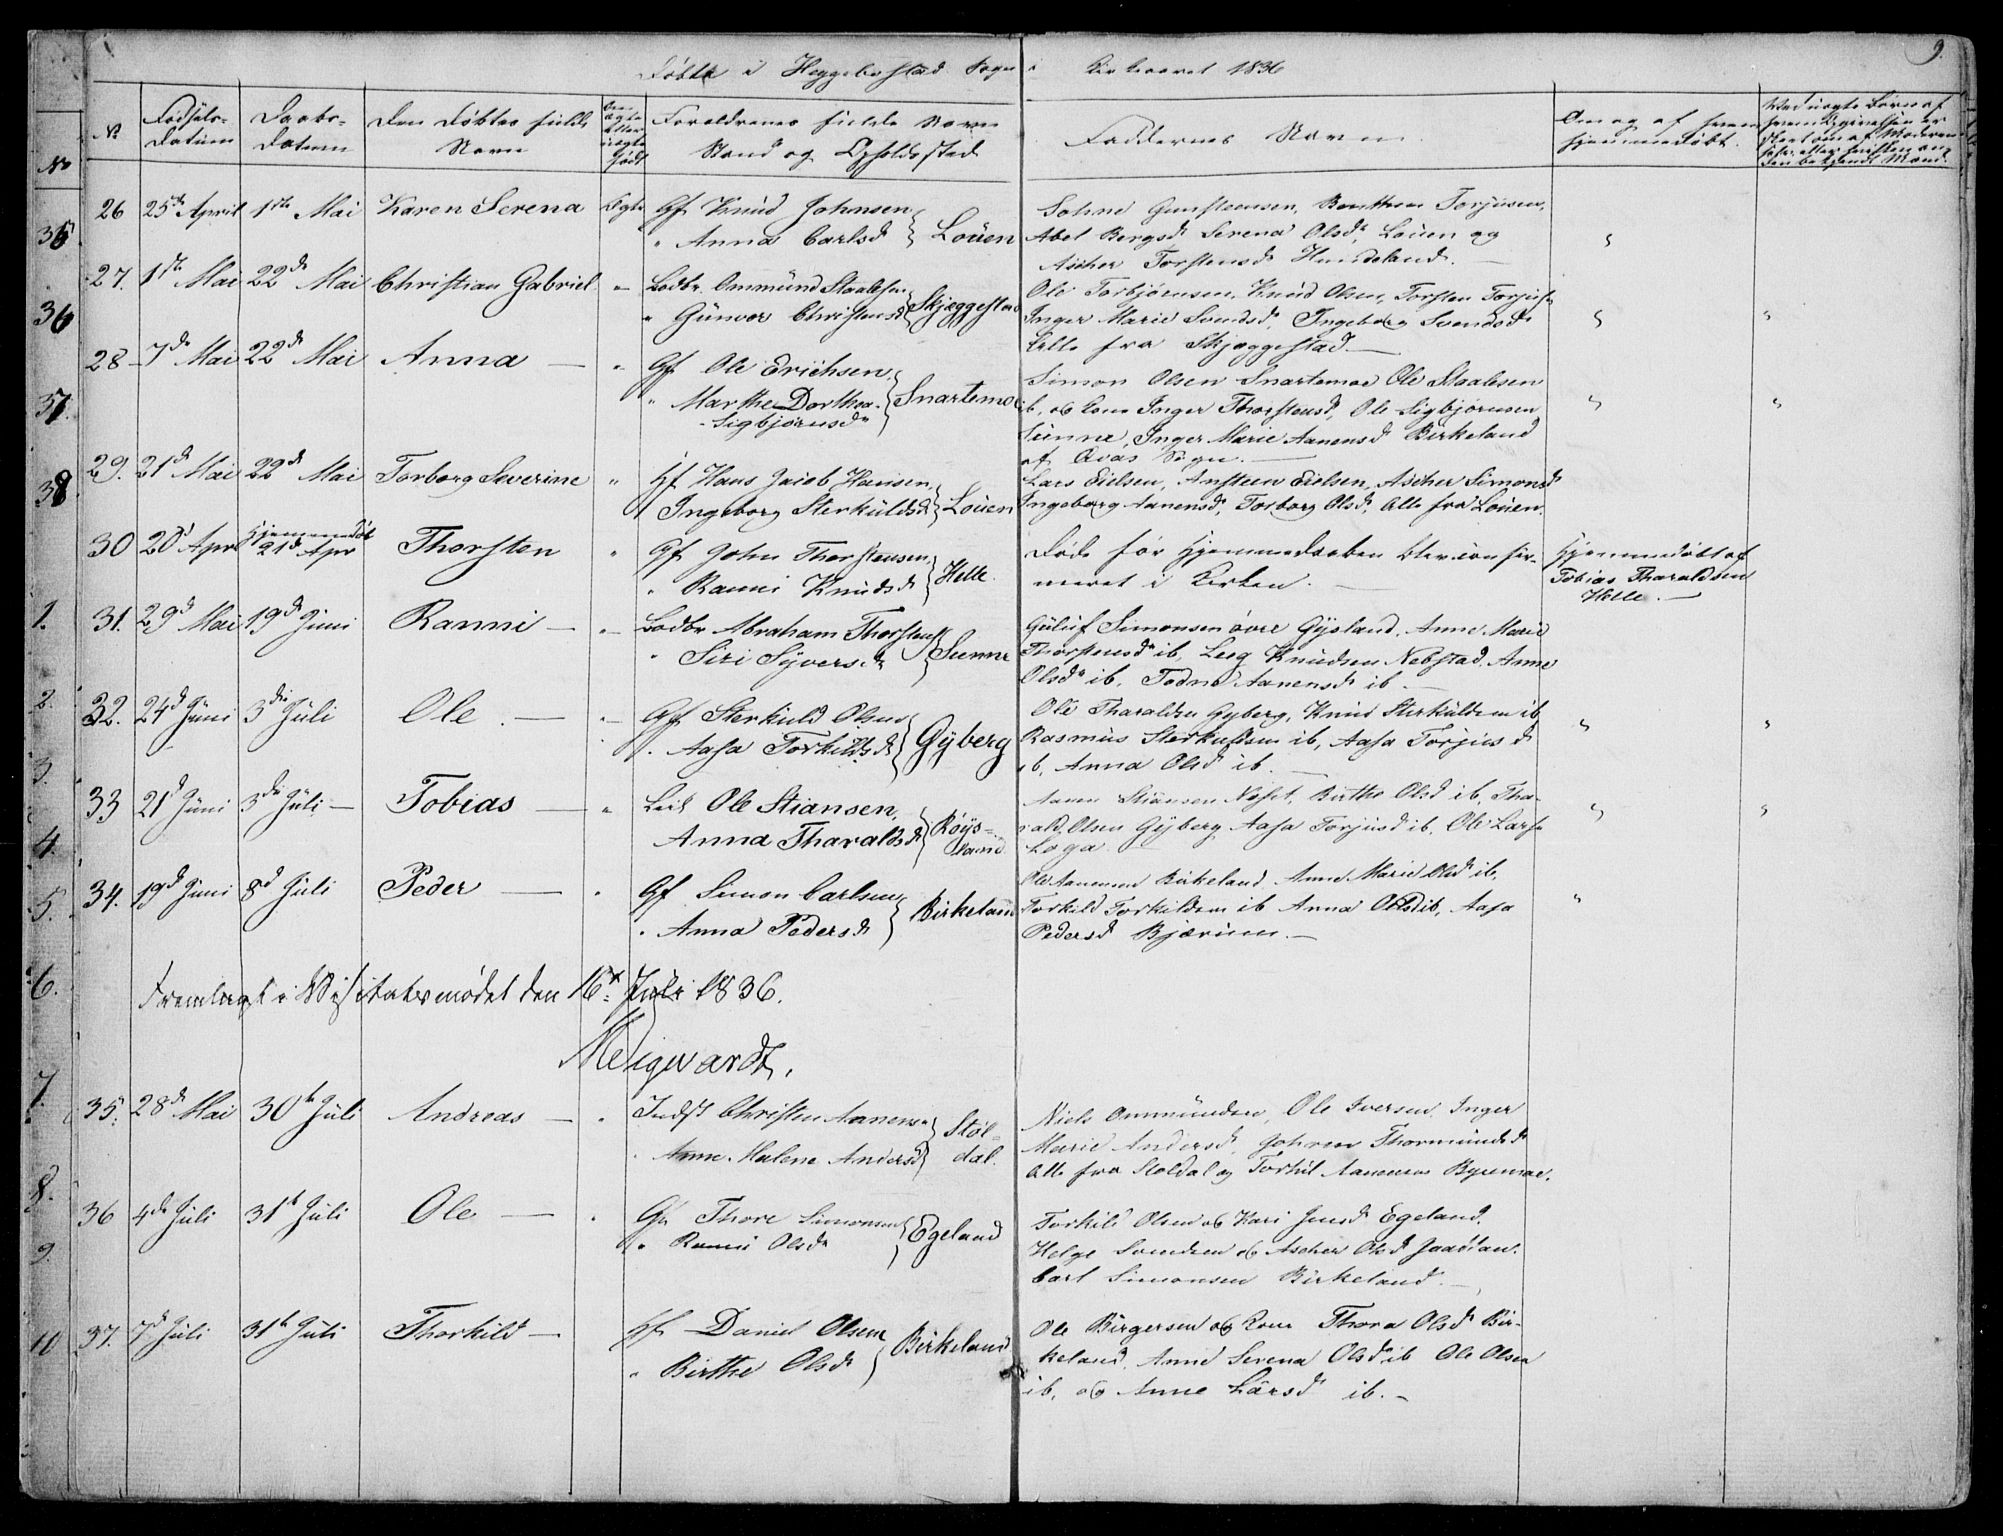 Døbte i Heggebostad Sogn i Kirkeaaret 1836
9.
No
Fødsels-Datum
Daabs-Datum
Den Døbtes fulde Navn
Om ægte eller uægte født
Forældrenes fulde Navn Stand og Opholdssted
Faddernes Navn
Om og af hvem hjemmedøbt.
No
35
36
37.
38
1.
2.
3.
4.
5.
6.
7.
8.
9.
10
26 25de April 1ste Mai Karen Serena Ægte Gf Knud Johnsen
" Anna Carlsd } Løuen
Abel Bergsd Serena Olsd, Løuen og
Ascher Torstensd Hundeland. —
27. 1ste Mai 22de Mai Christian Gabriel " Ommund Staalesen
" Gunvor Christensd } Skjeggestad
Ole Torbjørnsen, Knud Olsen, Torsten Torjus
Inger Marie Svendsd, Ingeborg Svendsd
Alle fra Skjeggestad —
28 7de Mai 22de Mai Anna — " Gf Ole Erichsen
" Marthe Dorthea
Sigbjørnsdr } Snartemoe
Simon Olsen Snartemoe Ole Staalesen
ib, og Kone Inger Thorstensd, Ole Sigbjørnsen
Sünne, Inger Marie Aanensd Birkeland
af Qvas Sogn. —
29. 21de Mai 22de Mai Torborg Severine " Hf Hans Jacob Hansen,
Ingeborg Sterkuldsd } Løuen
Lars Eielsen, Ansteen Eielsen, Ascher Simonsd
Ingeborg Aanensd, Torborg Olsd, Alle fra Løuen.
30 20d April Hjemmedøbt 21d Apr Thorsten " Gf John Thorstensen,
" Ranni Knudsd } Helle
Døde før Hjemmedaaben blev confir-
meret i Kirken. —
Hjemmedøbt af
Tobias Tharaldsen
Helle. —
31. 29d Mai 19d Juni Ranni — " Abraham Thorstens
" Siri Syversdr } Sünne
Guluf Simonsen øvre Gysland, Anne Marie
Thorstensd ib, Knudsen Nebstad, Anne
Olsdr ib, Aanensdr ib —
32. 24d Juni 3die Juli Ole. — " Gf Sterkuld Olsen
" Aasa Torkildsd } Gyberg
Ole Tharaldsen Gyberg, Knud Sterkuldsen ib
Rasmus Sterkuldsen ib, Aasa Torjusd
ib, Anna Olsd ib —
33 21d Juni 3die Juli — Tobias — " Ole Stiansen,
Anna Tharaldsd } Røys-
land
Aanen Stiansen Birthe Olsd ib, Tha-
rald Olsen Gyberg Aasa Torjusd ib, Ole Lars
Loga —
34. 19d Juni 8d Juli Peder — " Gf Simon Carlsen
" Anna Pedersd } Birkeland
Ole Aanensen Birkeland, Anne Marie Olsd ib,
Torkild Torkildsen ib Anna Olsd ib, Aasa
Pedersd Bjærum —
Fremlagt i Visitatsmødet den 16de Juli 1836.
Meigvardt.
35. 28de Mai 30te Juli Andreas — " Indst Christen Aanens
" Anne Malene Andersd } Støl-
dal
Niels Ommundsen, Ole Iversen, Inger
Marie Andersd, Thormundsd
Alle fra Støldal og Torkil Aanensen Byremoe.
36 4de Juli 31te Juli Ole — " Gf Thore Simonsen
" Ranni Olsdr } Egeland
Torkild Olsen og Kari Jensd Egeland,
Helge Svendsen og Ascher Olsd
Carl Simonsen Birkeland. —
37. 7d Juli 31te Juli Thorkild — Hf Daniel Olsen
" Birthe Olsdr } Birkeland
Ole Birgersen og Kone Thora Olsdr Bir-
keland, Anne Serena Olsdr ib Ole Olsen
ib, og Anne Larsd ib. —